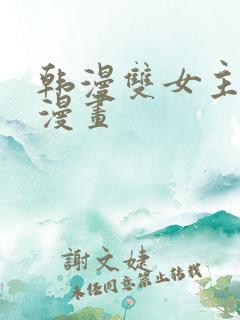 韩漫雙女主
漫畫
謝文婕
未经同意禁止转载